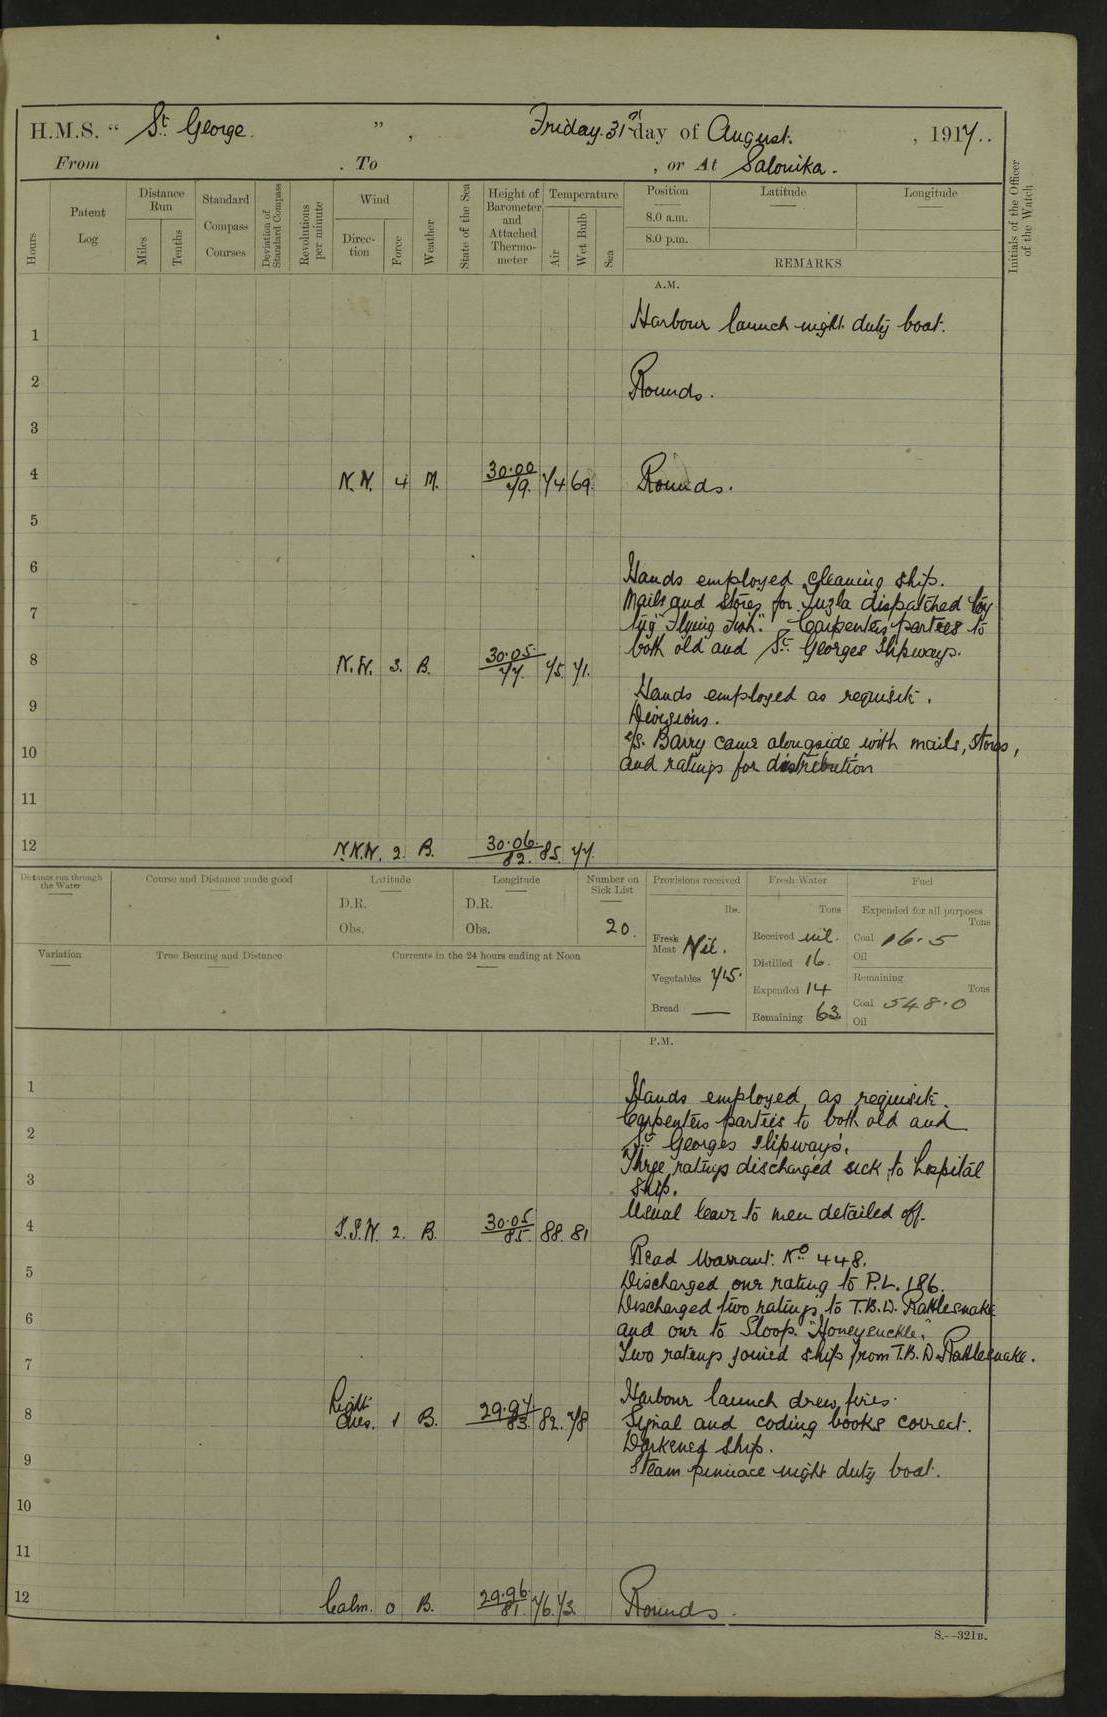 H.M.S. “ St George. ” , Friday 31st day of August. , 1917..
From . To , or At Salonika.
Hours
Patent Log
Distance Run
Miles
Tenths
Standard Compass Courses
Deviation of Standard Compass
Revolutions per minute
Wind
Direction
Force
Weather
State of the Sea
Height of Barometer and Attached Thermometer
Temperature
Air
Wet Bulb
Sea
Position Latitude Longitude
8.0 a.m.
8.0 p.m.
REMARKS
Initials of the Officer of the Watch
A.M.
Harbour launch night duty boat.
1
2 Rounds.
3
4 N.W. 4 M. 30.00 79. 74 69. Rounds.
5
6 Hands employed cleaning ship.
Mails and stores for Tuzla dispatched by
7 tug "Flying Fish". Carpenters parties to
both old and St Georges slipways.
8 N.W. 3. B. 30.05. 77. 75. 71.
Hands employed as requisite.
9 Divisions.
S/S. Barry came alongside with mails, stores,
10 and ratings for distribution
11
12 N.N.W. 2. B. 30.06. 82. 85. 77.
Distance run through the Water
Course and Distance made good
Latitude
D.R.
Obs.
Longitude
D.R.
Obs.
Number on Sick List
20.
Provisions received
lbs.
Fresh Meat Nil.
Vegetables 715.
Bread —
Fresh Water
Tons
Received nil.
Distilled 16.
Expended 14
Remaining 63
Fuel
Expended for all purposes
Tons
Coal 16.5
Oil
Remaining
Tons
Coal 548.0
Oil
Variation
True Bearing and Distance
Currents in the 24 hours ending at Noon
P.M.
1 Hands employed as requisite.
Carpenters parties to both old and
2 St Georges slipways.
Three ratings discharged sick to hospital
3 ship.
Usual leave to men detailed off.
4 S.S.W. 2. B. 30.05 85. 88. 81
Read Warrant No 448.
5 Discharged one rating to P.L. 186.
Discharged two ratings to T.B.D. Rattlesnake
6 and one to Sloop. "Honeysuckle."
Two ratings joined ship from T.B.D. Rattlesnake.
7
Harbour launch drew fires.
8 Light airs. 1 B. 29.97 83. 82. 78 Signal and coding books correct.
Darkened ship.
9 Steam pinnace night duty boat.
10
11
12 Calm. 0 B. 29.96. 81. 76. 73. Rounds.
S.—321B.